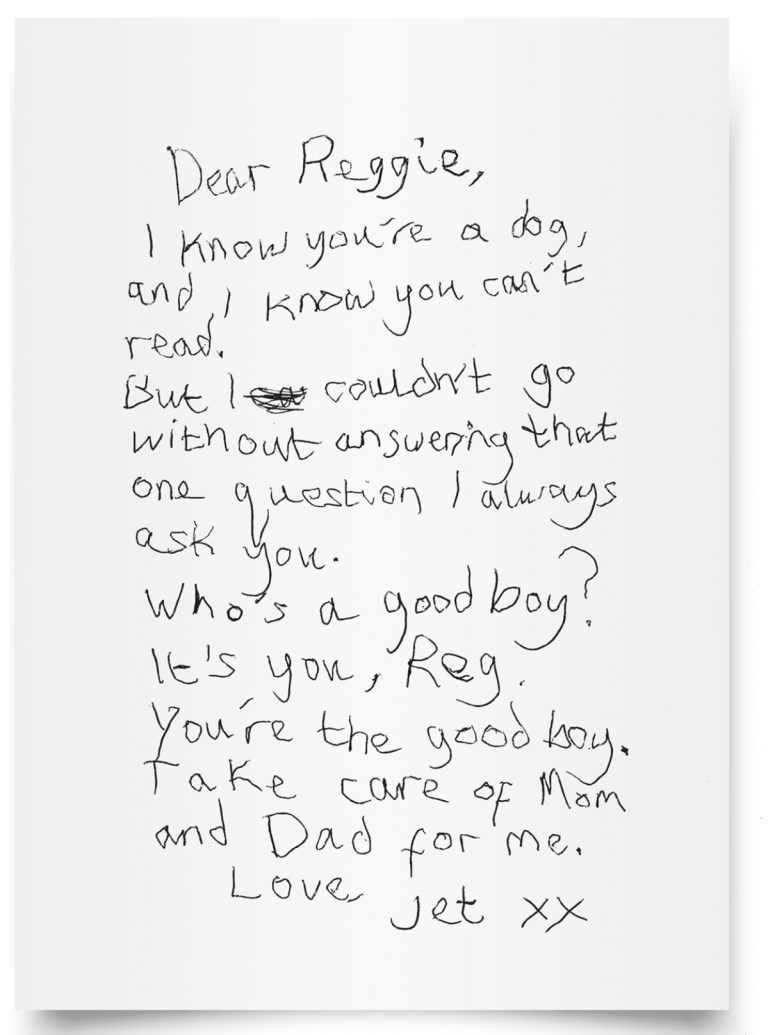 Dear Reggie,
I know you're a dog,
and I know you can't
read.
But I couldn't go
without answering that
one question I always
ask you.
Who's a good boy?
It's you, Reg.
You're the good boy.
Take care of Mom
and Dad for me.
Love
Jet xx